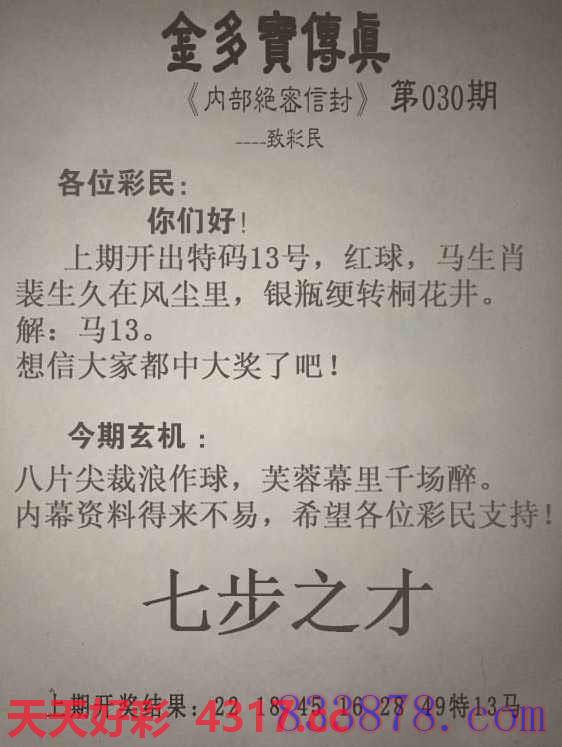 金多寶傳眞
《内部絕密信封》 第030期
----致彩民
各位彩民：
你们好！
上期开出特码13号，红球，马生肖
裴生久在风尘里，银瓶绠转桐花井。
解：马13。
想信大家都中大奖了吧！
今期玄机：
八片尖裁浪作球，芙蓉幕里千场醉。
内幕资料得来不易，希望各位彩民支持！
七步之才
上期开奖结果：22 18 45 16 28 49特13马
天天好彩 4317.cc 853878.com